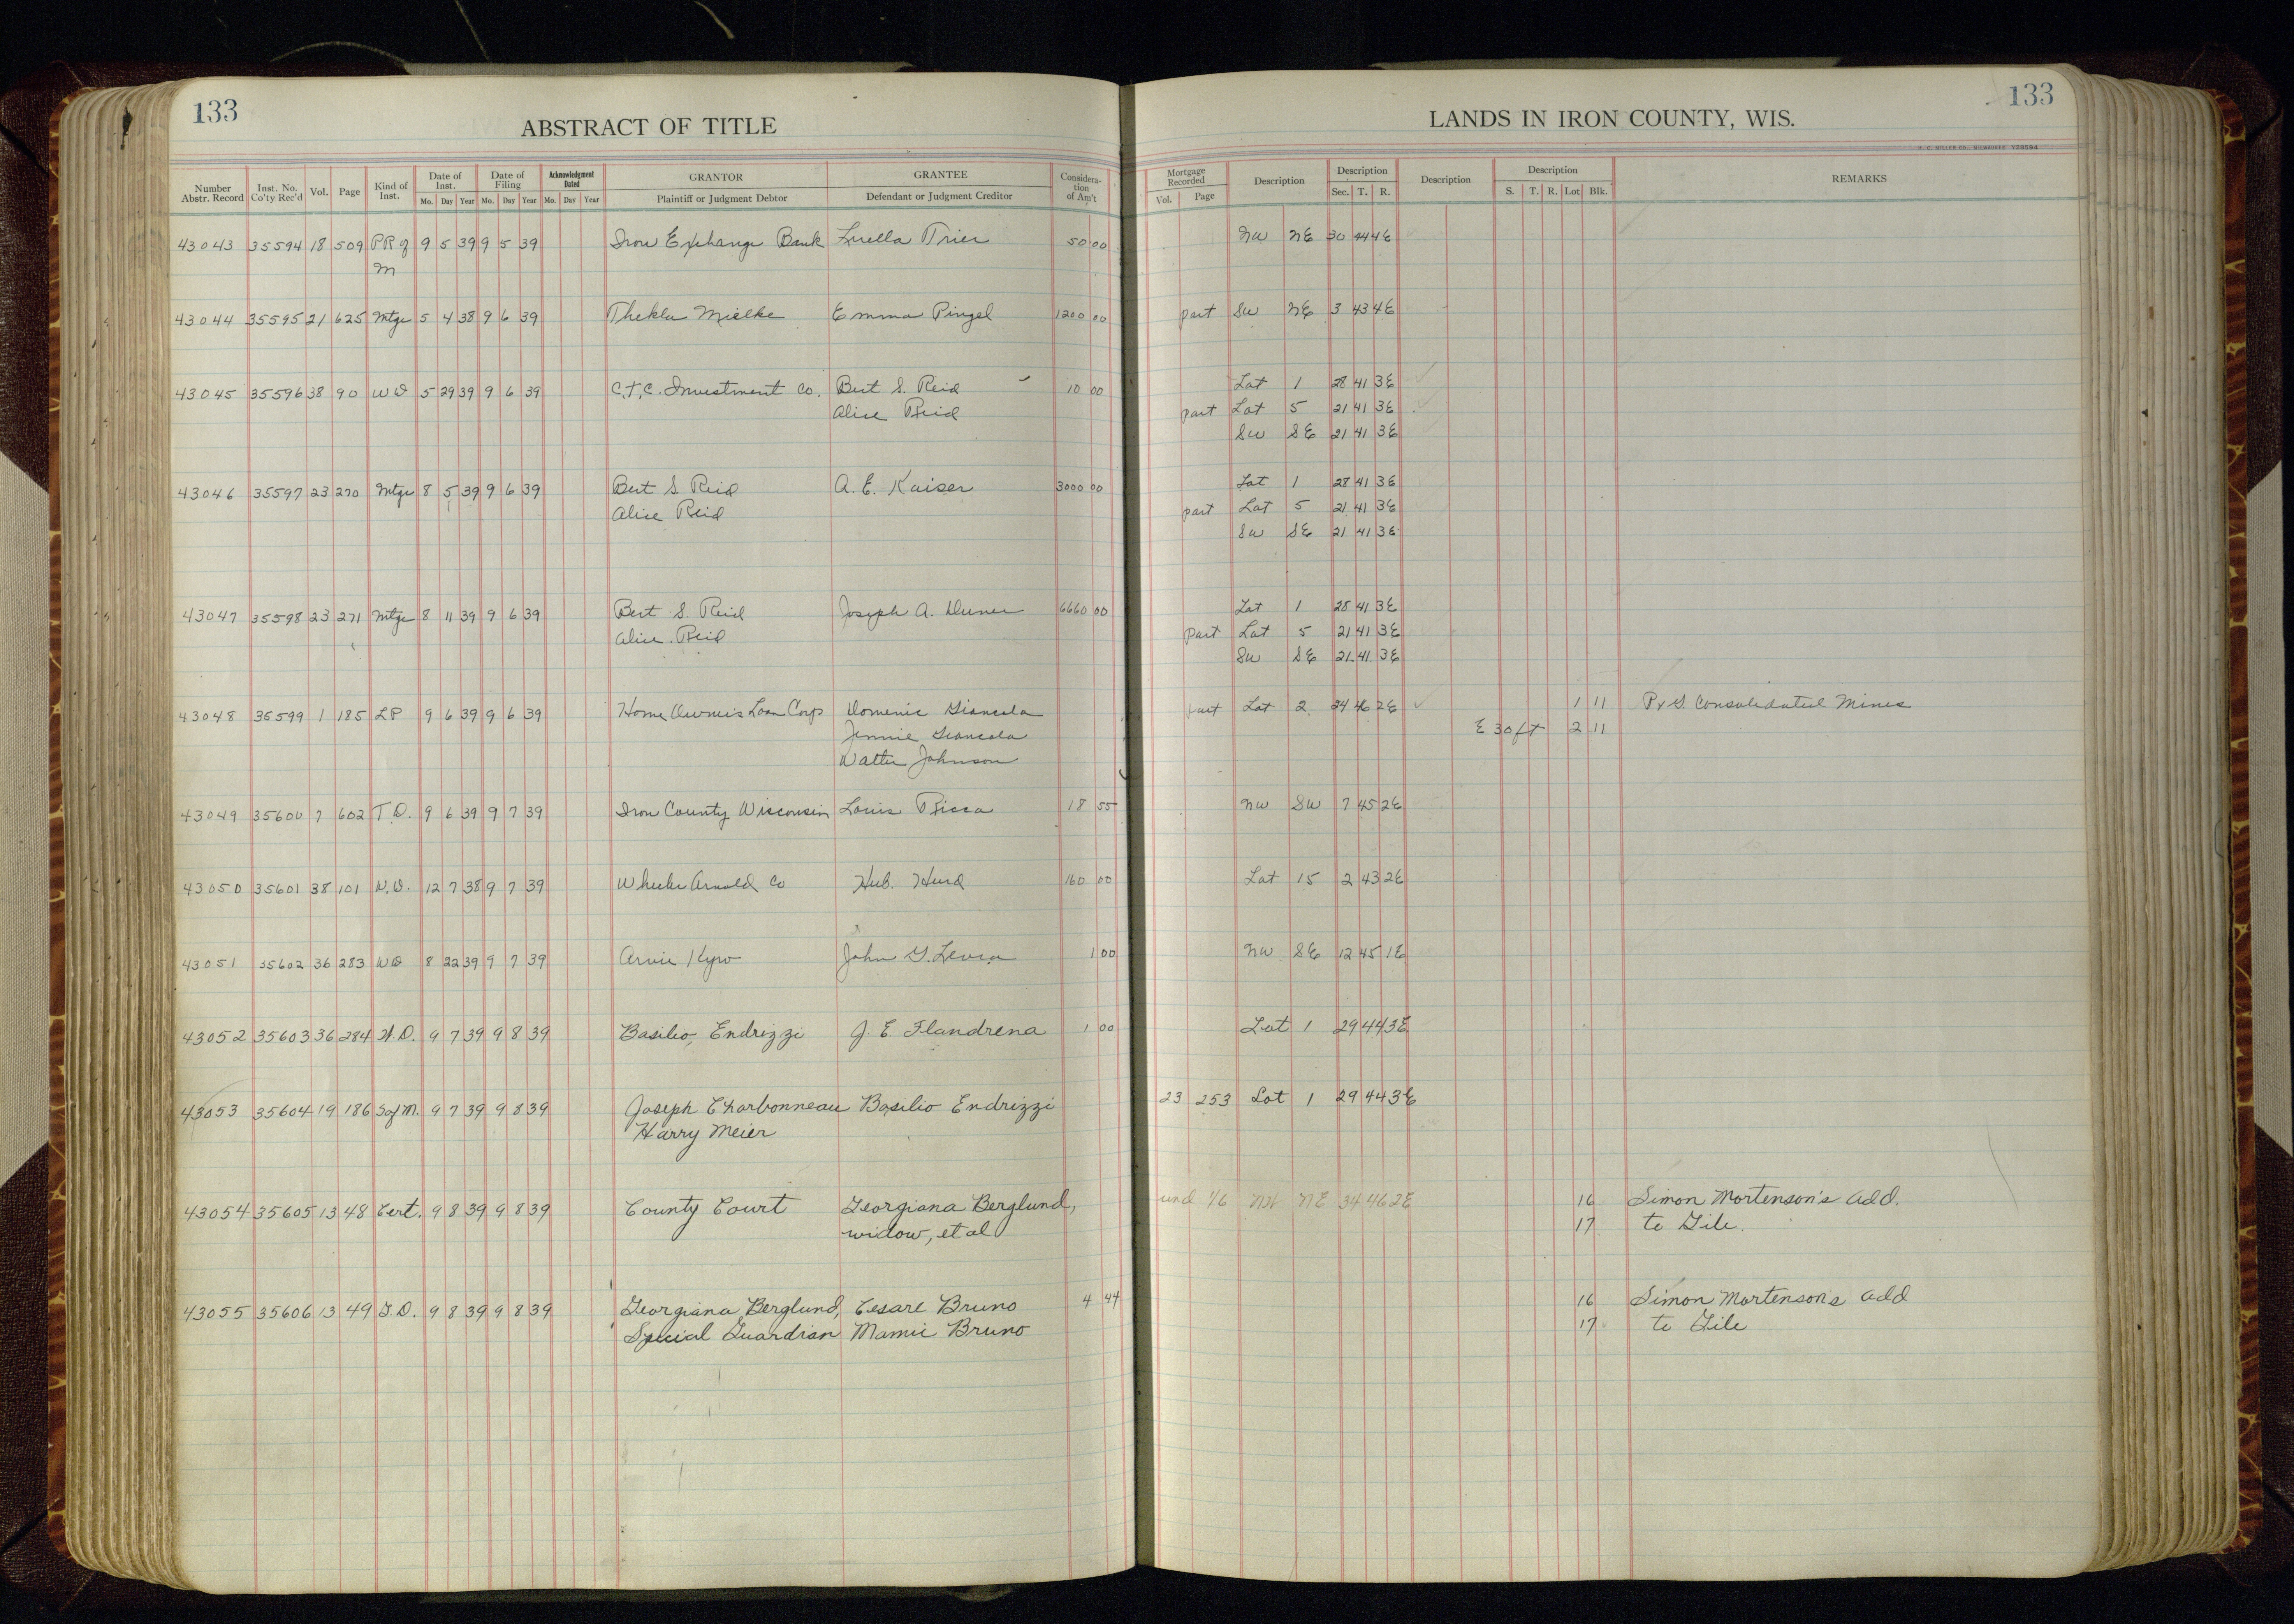 133
ABSTRACT OF TITLE
LANDS IN IRON COUNTY, WIS.
133
H. C. MILLER CO., MILWAUKEE Y28594
Number Abstr. Record | Inst. No. Co'ty Rec'd | Vol. | Page | Kind of Inst. | Date of Inst. Mo. Day Year | Date of Filing Mo. Day Year | Acknowledgment Dated Mo. Day Year | GRANTOR Plaintiff or Judgment Debtor | GRANTEE Defendant or Judgment Creditor | Consideration of Am't | Mortgage Recorded Vol. Page | Description | Description Sec. T. R. | Description | Description S. T. R. Lot Blk. | REMARKS
43043 35594 18 509 PR of 9 5 39 9 5 39 Iron Exchange Bank Luella Trier 50 00 NW NE 30 44 4E
M
43044 35595 21 625 Mtge 5 4 38 9 6 39 Thekla Mielke Emma Pingel 1200 00 part SW NE 3 43 4E
43045 35596 38 90 WD 5 29 39 9 6 39 C.T.C. Investment Co. Bert S. Reid 10 00 Lot 1 28 41 3E
Alice Reid part Lot 5 21 41 3E
SW SE 21 41 3E
43046 35597 23 270 Mtge 8 5 39 9 6 39 Bert S Reid A. E. Kaiser 3000 00 Lot 1 28 41 3E
Alice Reid part Lot 5 21 41 3E
SW SE 21 41 3E
43047 35598 23 271 Mtge 8 11 39 9 6 39 Bert S. Reid Joseph A. 6660 00 Lot 1 28 41 3E
Alice Reid part Lot 5 21 41 3E
SW SE 21 41 3E
43048 35599 1 185 LP 9 6 39 9 6 39 Home Owners Loan Corp Domenic Giancola part Lot 2 24 46 2E 1 11 P v G Consolidated Mines
Jennie Giancola E 30 ft 2 11
Walter Johnson
43049 35600 7 602 T.D. 9 6 39 9 7 39 Iron County Wisconsin Louis Ricca 18 55 NW SW 7 45 2E
43050 35601 38 101 W.D. 12 7 38 9 7 39 Wheeler Arnold Co Hub. Hurd 160 00 Lot 15 2 43 2E
43051 35602 36 283 WD 8 22 39 9 7 39 Arvie Kyro John G. 1 00 NW SE 12 45 1E
43052 35603 36 284 W.D. 9 7 39 9 8 39 Basilio Endrizzi J. E. Flandrena 1 00 Lot 1 29 44 3E
43053 35604 19 186 S of M. 9 7 39 9 8 39 Joseph Charbonneau Basilio Endrizzi 23 253 Lot 1 29 44 3E
Harry Meier
43054 35605 13 48 Cert. 9 8 39 9 8 39 County Court Georgiana Berglund, und 1/6 NW NE 34 46 2E 16 Simon Mortenson's Add.
widow, et al 17 to Gile.
43055 35606 13 49 G.D. 9 8 39 9 8 39 Georgiana Berglund, Cesare Bruno 4 44 16 Simon Mortensons Add
Special Guardian Mamie Bruno 17 to Gile